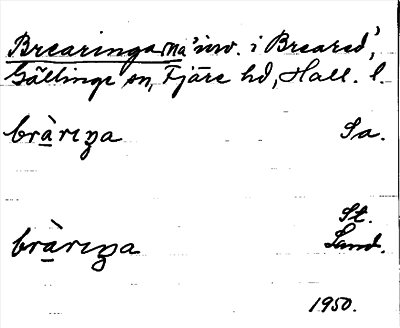 Brearingarna 'inv. i Breared',
Gällinge sn, Fjäre hd, Hall. l.
bràrɩŋa Sa.
St.
bràrɩŋa Sand.
1950.